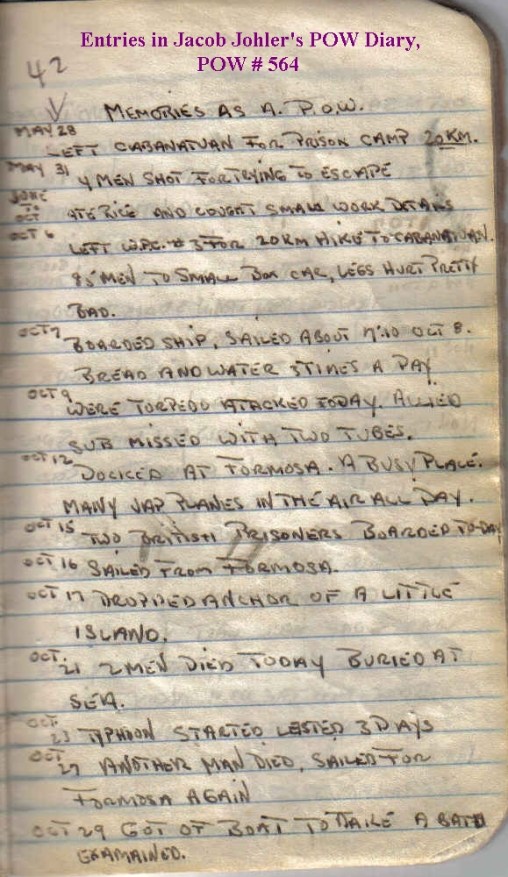 Entries in Jacob Johler's POW Diary,
POW # 564
42
MEMORIES AS A. P.O.W.
MAY 28
LEFT CABANATUAN FOR PRISON CAMP 20KM.
MAY 31
4 MEN SHOT FOR TRYING TO ESCAPE
JUNE
TO
OCT
ATE RICE AND COUGHT SMALL WORK DETAILS
OCT 6
LEFT W.P.C. # 3 FOR 20KM HIKE TO CABANATUAN.
85 MEN TO SMALL BOX CAR, LEGS HURT PRETTY
BAD.
OCT 7
BOARDED SHIP, SAILED ABOUT OCT 8.
BREAD AND WATER 3 TIMES A DAY
OCT 9
WERE TORPEDO ATACKED TODAY. ALLIED
SUB MISSED WITH TWO TUBES.
OCT 12
DOCKED AT FORMOSA. A BUSY PLACE.
MANY JAP PLANES IN THE AIR ALL DAY.
OCT 15 TWO BRITISH PRISONERS BOARDED TO-DAY
OCT 16 SAILED FROM FORMOSA.
OCT 17 DROPPED ANCHOR OF A LITTLE
ISLAND.
OCT 21 2 MEN DIED TODAY BURIED AT
SEA.
OCT 23 TYPHOON STARTED LESTED 3 DAYS
OCT 27 ANOTHER MAN DIED, SAILED FOR
FORMOSA AGAIN
OCT 29 GOT OF BOAT TO TAKE A BATH
EXAMAINED.